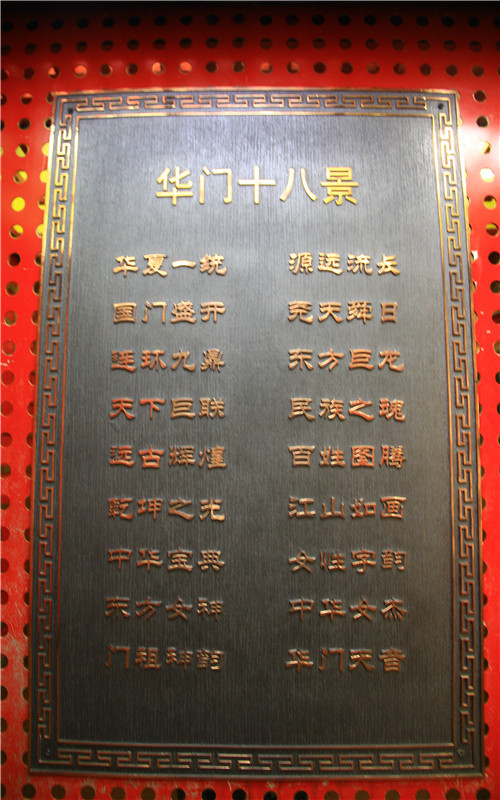 华门十八景
华夏一统 源远流长
国门盛开 尧天舜日
连环九鼎 东方巨龙
天下巨联 民族之瑰
远古辉煌 百姓图腾
乾坤之光 江山如画
中华宝典 女性字韵
东方女神 中华女杰
门祖神韵 华门天音